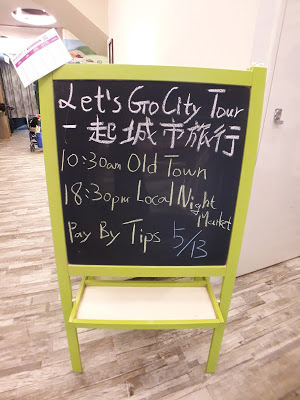 Let's Go City Tour
一起城市旅行
10:30am Old Town
18:30pm Local Night
Market
Pay By Tips 5/13